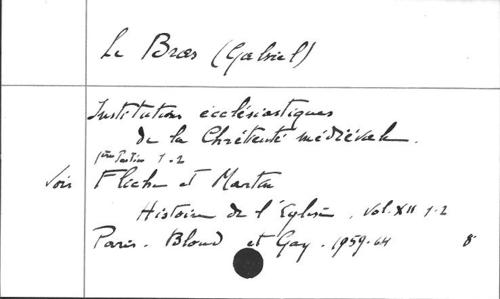 Le Bras (Gabriel)
Institutions ecclésiastiques
de la Chrétienté médiévale.
1ère Partie 1-2
voir Fliche et Martin
Histoire de l'Eglise. Vol. XII 1-2
Paris. Bloud et Gay. 1959-64 8°